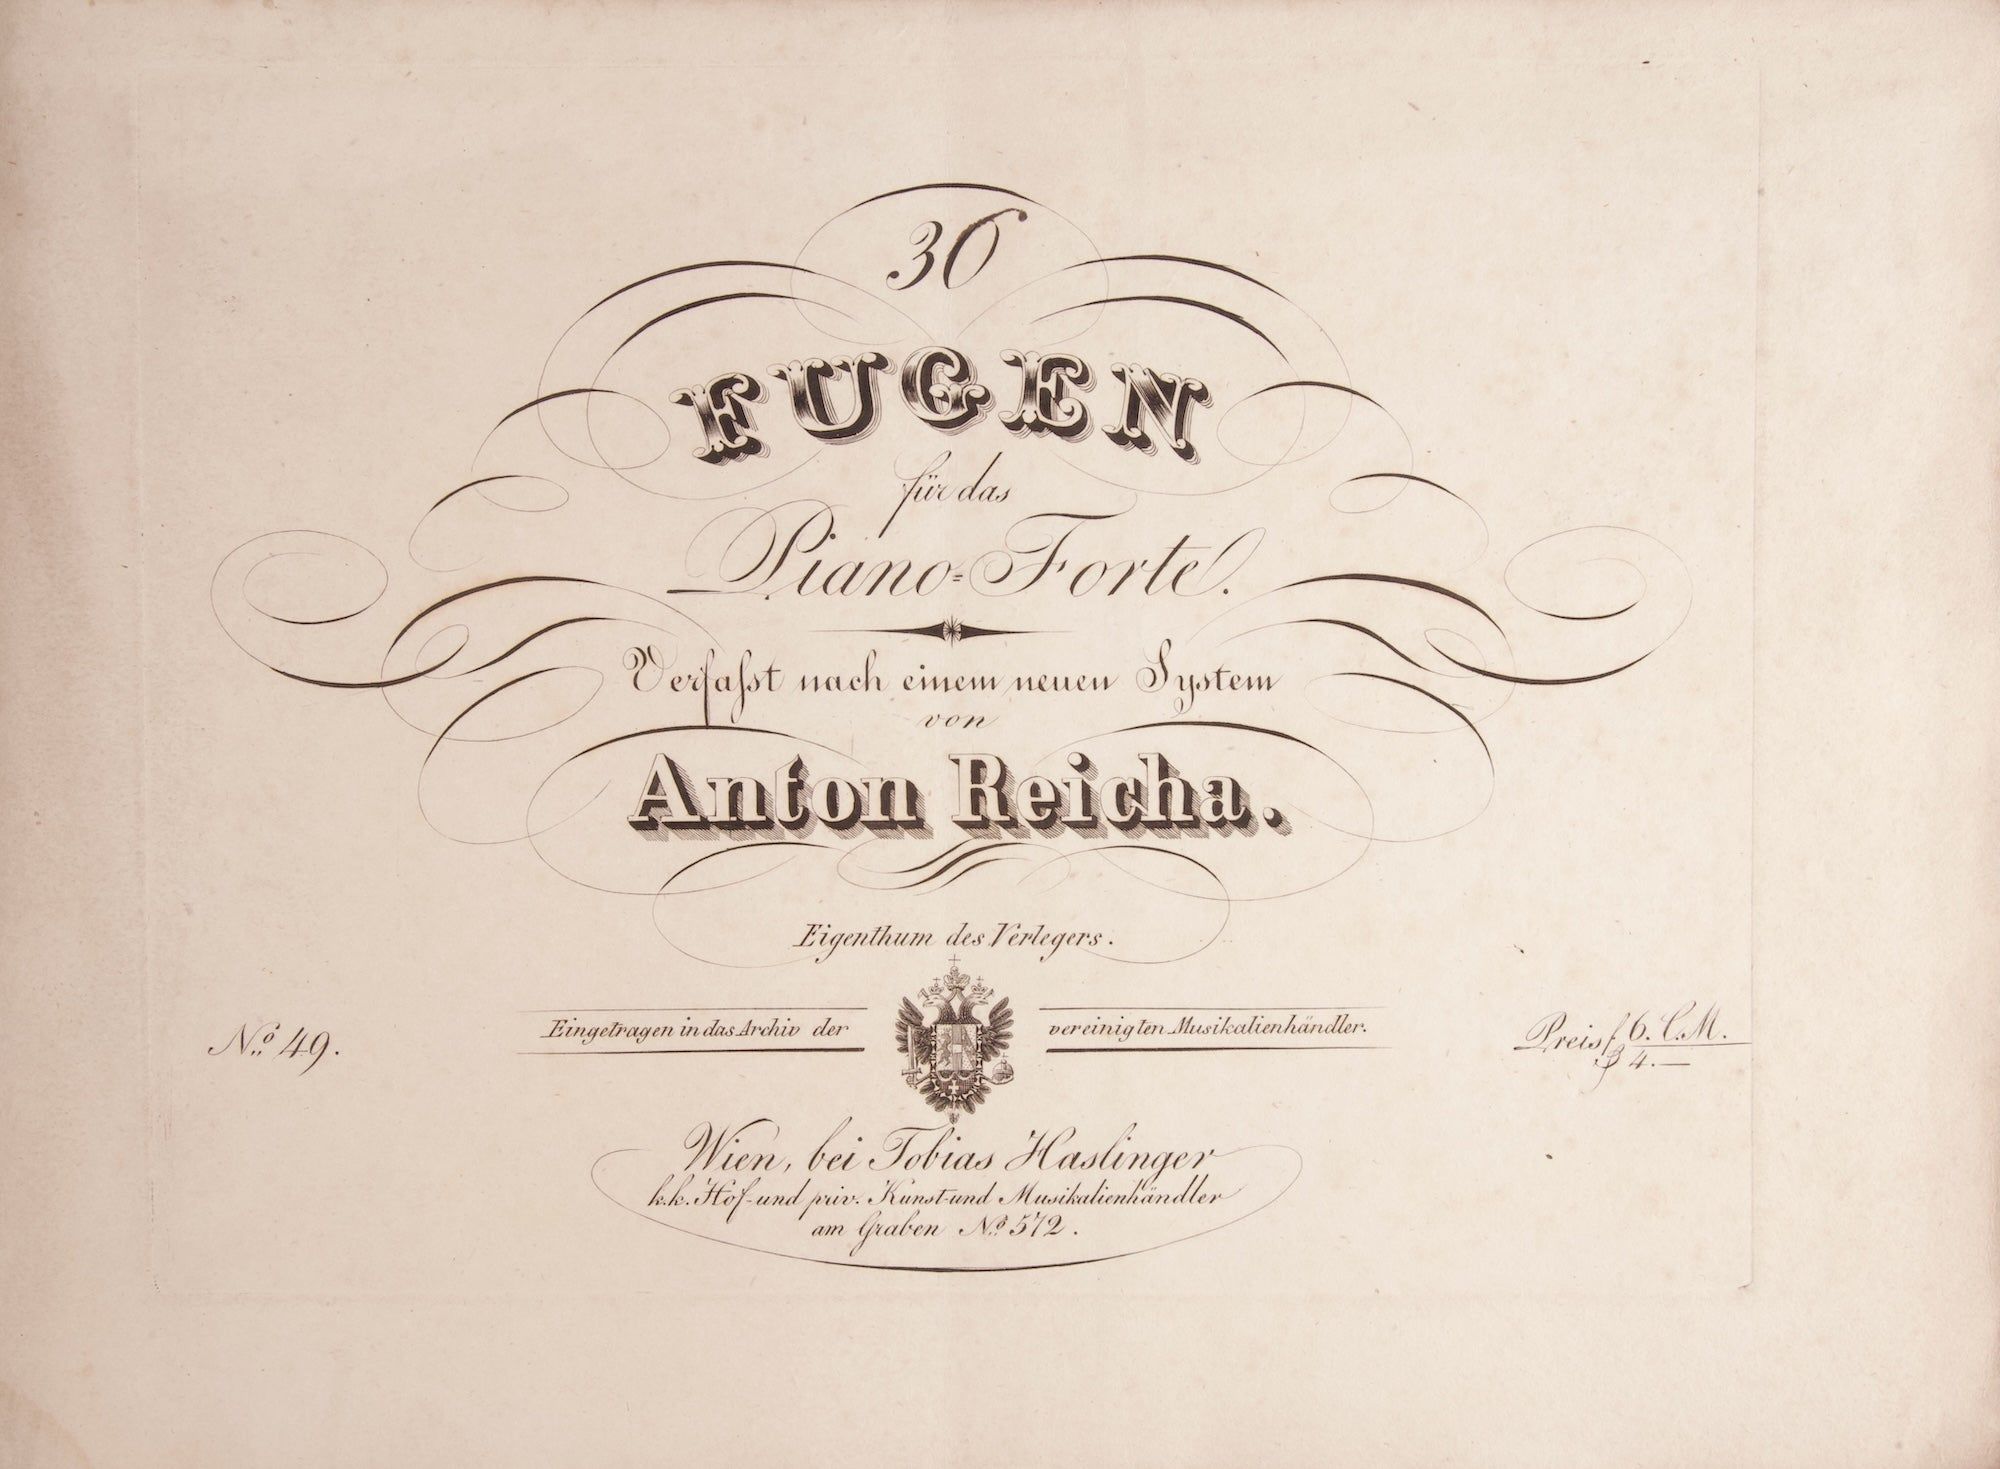 36
FUGEN
für das
Piano=Forte.
Verfaſst nach einem neuen System
von
Anton Reicha.
Eigenthum des Verlegers.
Eingetragen in das Archiv der vereinigten Musikalienhändler.
No. 49.
Preis f 6. C.M.
4.—
Wien, bei Tobias Haslinger
k.k. Hof- und priv. Kunst- und Musikalienhändler
am Graben No. 572.